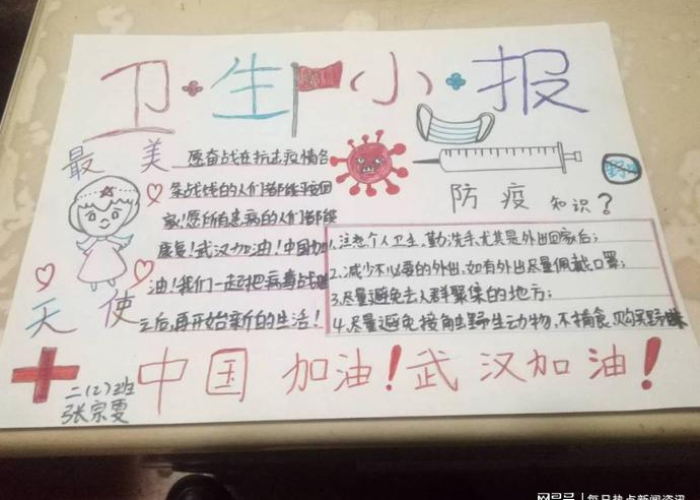 卫·生小·报
最美
天使
愿奋战在抗击疫情各
条战线的人们都能平安回
家!愿所有患病的人们都能
康复!武汉加油!中国加
油!我们一起把病毒战
之后,再开始新的生活!
防疫知识?
1.注意个人卫生,勤洗手尤其是外出回家后;
2.减少不必要的外出,如有外出尽量佩戴口罩;
3.尽量避免去人群聚集的地方;
4.尽量避免接触野生动物,不捕食、购买野味
二(2)班
张宗雯
中国加油!武汉加油!
网易号 | 每日热点新闻资讯